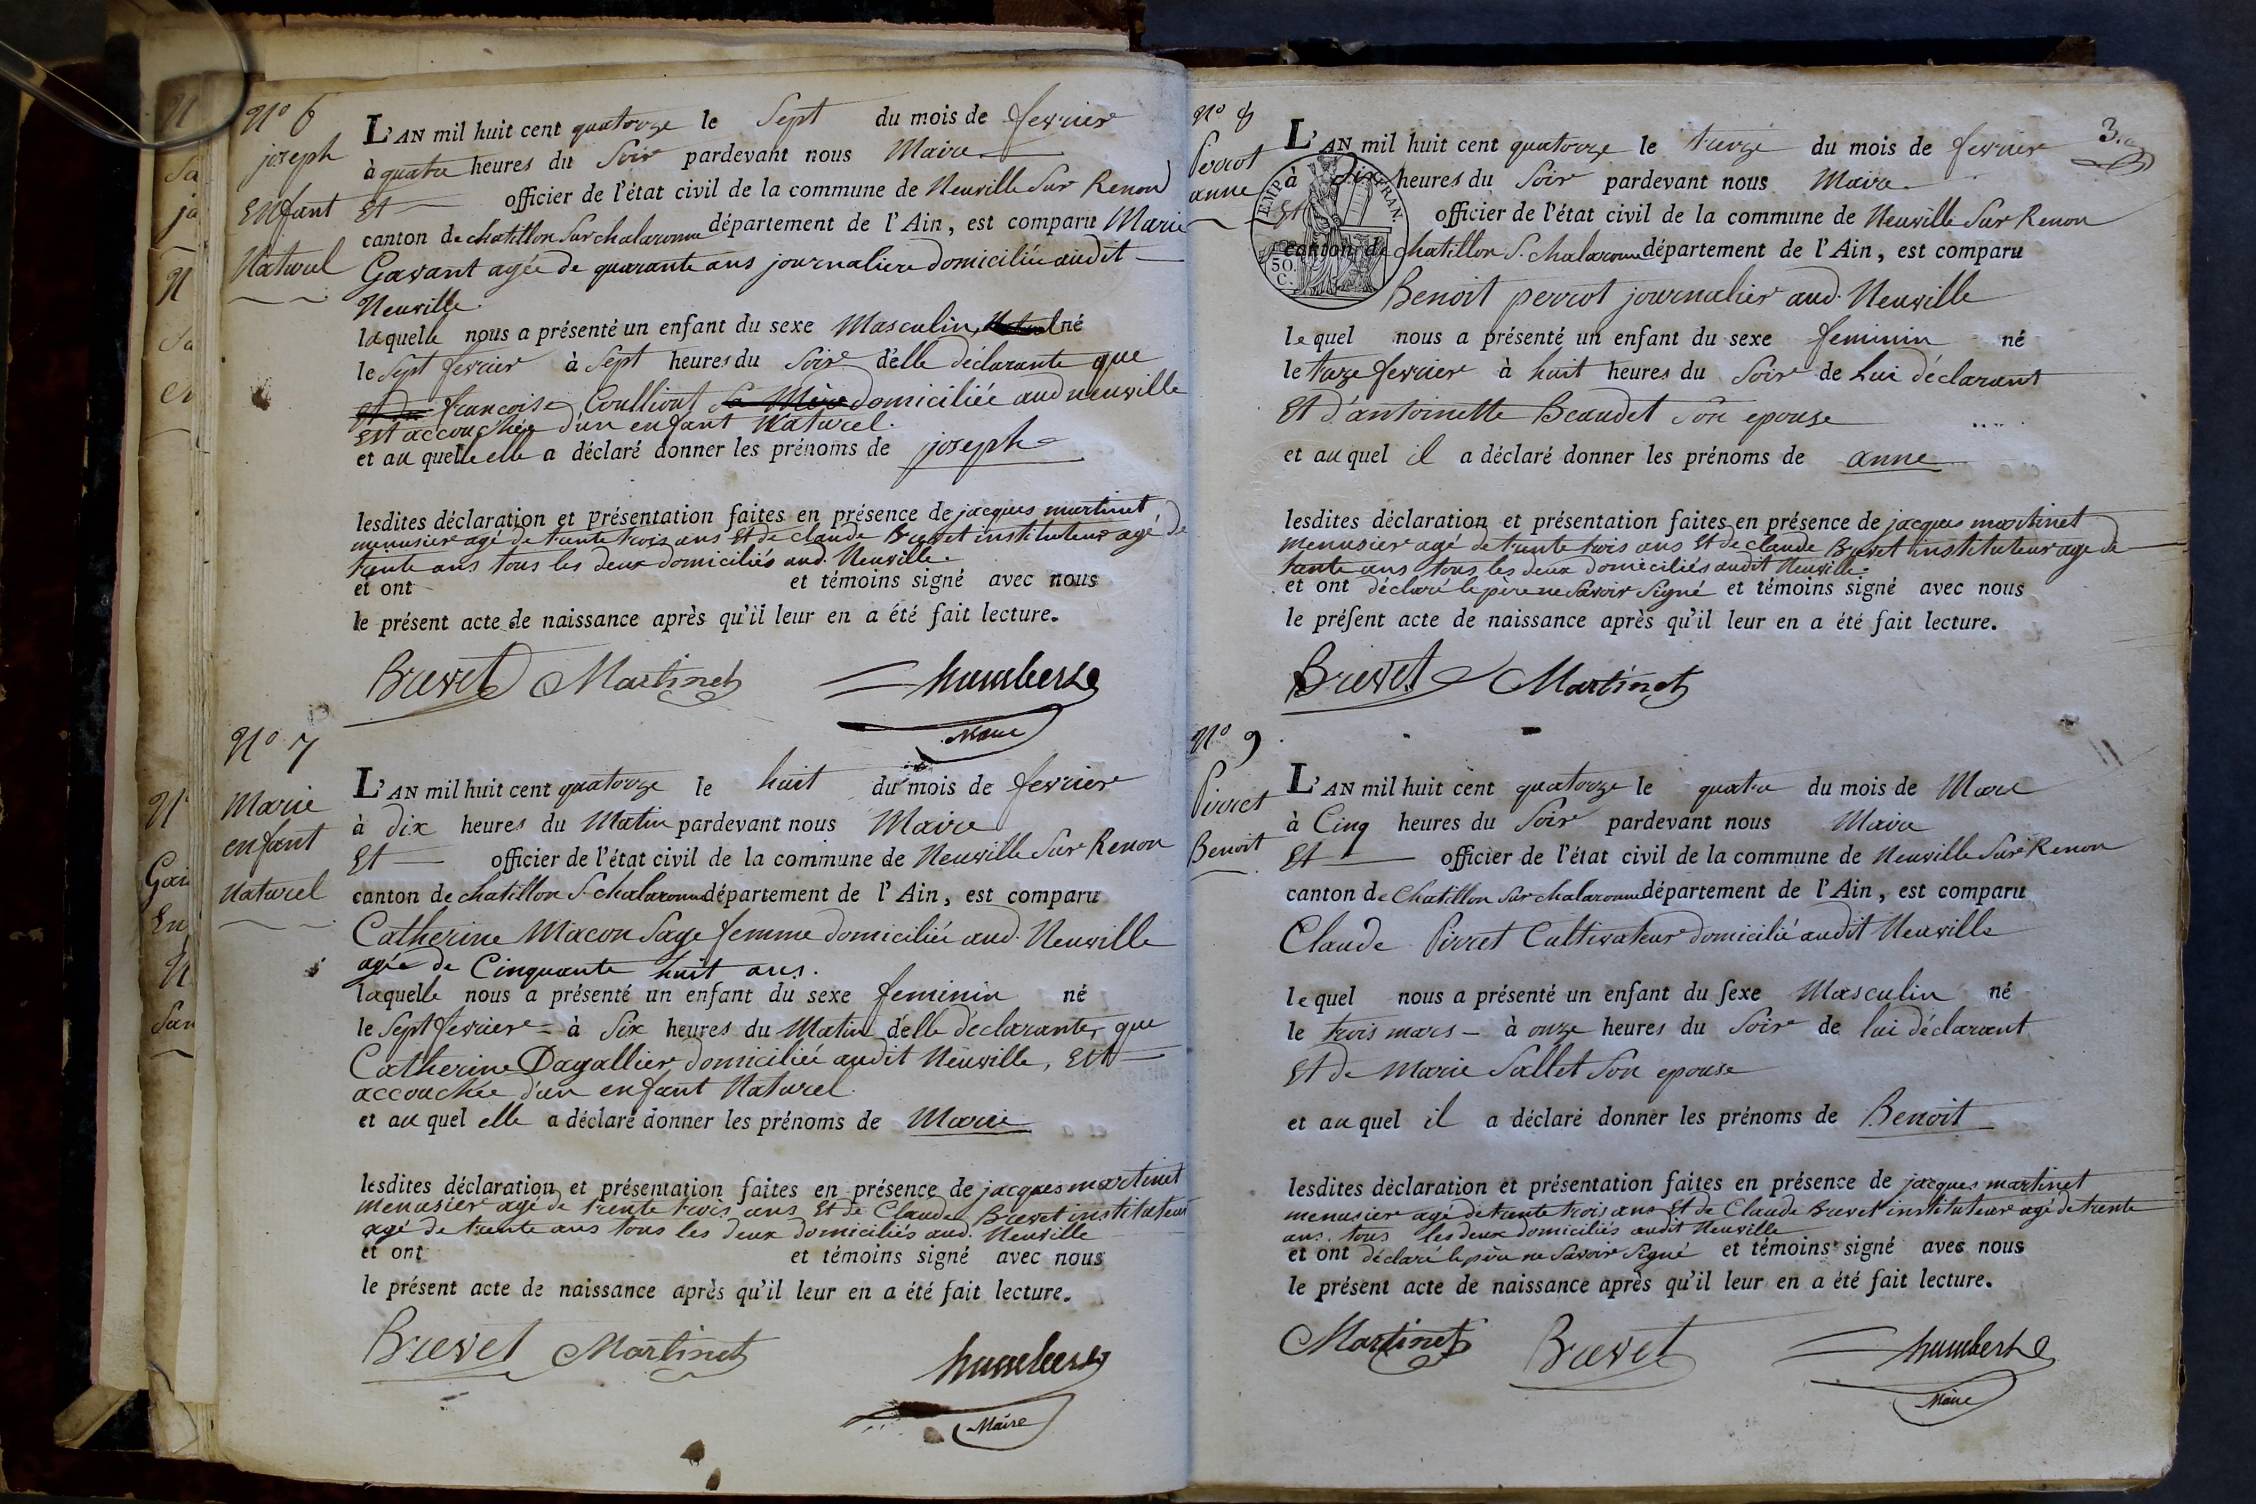 N° 6
joseph
Enfant
Naturel
L'AN mil huit cent quatorze le Sept du mois de fevrier
à quatre heures du Soir pardevant nous Maire
Et officier de l'état civil de la commune de Neuville Sur Renon
canton de chatillon Sur chalaronne département de l'Ain, est comparu Marie
Gavant agée de quarante ans journaliere domiciliée audit
Neuville.
laquelle nous a présenté un enfant du sexe Masculin né
le Sept fevrier à Sept heures du Soir d'elle déclarante que
francoise domiciliée aud neuville
Est accouchée d'un enfant Naturel.
et au quel elle a déclaré donner les prénoms de joseph
lesdites déclaration et présentation faites en présence de jacques martinet
menusier agé de trente trois ans Et de claude Brevet instituteur agé de
trente ans tous les deux domiciliés aud. Neuville.
et ont et témoins signé avec nous
le présent acte de naissance après qu'il leur en a été fait lecture.
Brevet Martinet humbert
Maire
N° 7
Marie
enfant
Naturel
L'AN mil huit cent quatorze le huit du mois de fevrier
à dix heures du Matin pardevant nous Maire
Et officier de l'état civil de la commune de Neuville Sur Renon
canton de chatillon S. chalaronne département de l'Ain, est comparu
Catherine Macon Sage femme domiciliée aud. Neuville
agée de Cinquante huit ans.
laquelle nous a présenté un enfant du sexe feminin né
le Sept fevrier à Six heures du Matin d'elle déclarante, que
Catherine Dagallier domiciliée audit Neuville, Est
accouchée d'un enfant Naturel.
et au quel elle a déclaré donner les prénoms de Marie
lesdites déclaration et présentation faites en présence de jacques martinet
menusier agé de trente trois ans Et de Claude Brevet instituteur
agé de trente ans tous les deux domiciliés aud. Neuville
et ont et témoins signé avec nous
le présent acte de naissance après qu'il leur en a été fait lecture.
Brevet Martinet humbert
Maire
3.
N° 8
Perrot
anne
EMP. FRAN.
50.
C.
L'AN mil huit cent quatorze le treize du mois de fevrier
à dix heures du Soir pardevant nous Maire
Et officier de l'état civil de la commune de Neuville Sur Renon
canton de chatillon S. chalaronne département de l'Ain, est comparu
Benoit perrot journalier aud. Neuville
lequel nous a présenté un enfant du sexe feminin né
le treize fevrier à huit heures du Soir de Lui déclarant
Et d'antoinette Beaudet Son epouse
et au quel il a déclaré donner les prénoms de anne
lesdites déclaration et présentation faites en présence de jacques martinet
menusier agé de trente trois ans Et de claude Brevet instituteur age de
trente ans tous les deux domiciliés audit Neuville.
et ont déclaré le père ne Savoir Signé et témoins signé avec nous
le présent acte de naissance après qu'il leur en a été fait lecture.
Brevet Martinet
N° 9
Pirret
Benoit
L'AN mil huit cent quatorze le quatre du mois de Mars
à Cinq heures du Soir pardevant nous Maire
Et officier de l'état civil de la commune de Neuville Sur Renon
canton de Chatillon Sur chalaronne département de l'Ain, est comparu
Claude Pirret Cultivateur domicilié audit Neuville
lequel nous a présenté un enfant du sexe Masculin né
le trois mars à onze heures du Soir de lui déclarant
Et de Marie Sallet Son epouse
et au quel il a déclaré donner les prénoms de Benoit
lesdites déclaration et présentation faites en présence de jacques martinet
menusier agé de trente trois ans Et de Claude Brevet instituteur agé de trente
ans. tous les deux domiciliés audit Neuville
et ont déclaré le père ne Savoir Signé et témoins signé avec nous
le présent acte de naissance après qu'il leur en a été fait lecture.
Martinet Brevet humbert
Maire